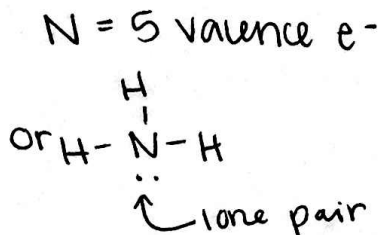 N = 5 valence e-
H
or H - N - H
..
lone pair